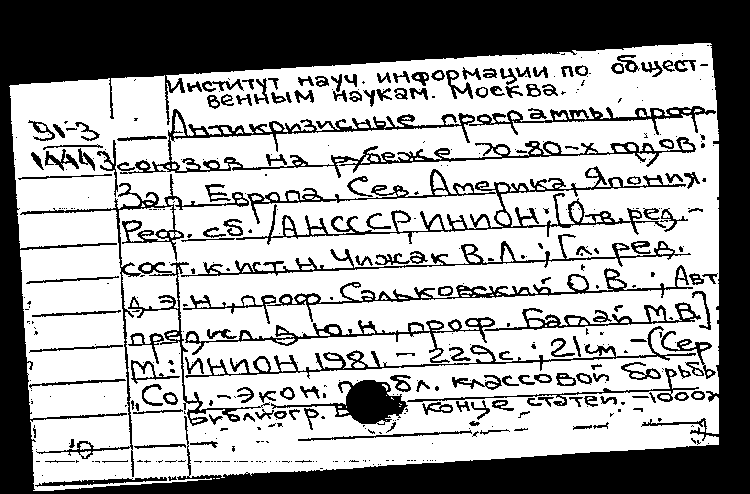 Институт науч. информации по общест-
венным наукам. Москва.
91-3
14443
Антикризисные программы проф-
союзов на рубеже 70-80-х годов:
Зап. Европа, Сев. Америка, Япония.
Реф. сб. / АНСССР, ИНИОН; [Отв. ред.-
сост. к. ист. н. Чижак В.Л. ; Гл. ред.
д.э.н., проф. Сальковский О.В. ; Авт
предисл. д.ю.н., проф. Баглай М.В.]
М.: ИНИОН, 1981. - 229с. ; 21см. - (Сер
"Соц.-экон. пробл. классовой борьбы
Библиогр. в конце статей. -
10